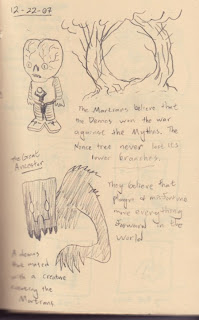 12-22-07
The Martians believe that
the Demons won the war
against the Mythos. The
tree never lost its
lower branches...
the Great
Ancestor
They believe that
plagues & misfortunes
move everything
forward in the
world
A demon
that mated
with a creature
creating the
Martians